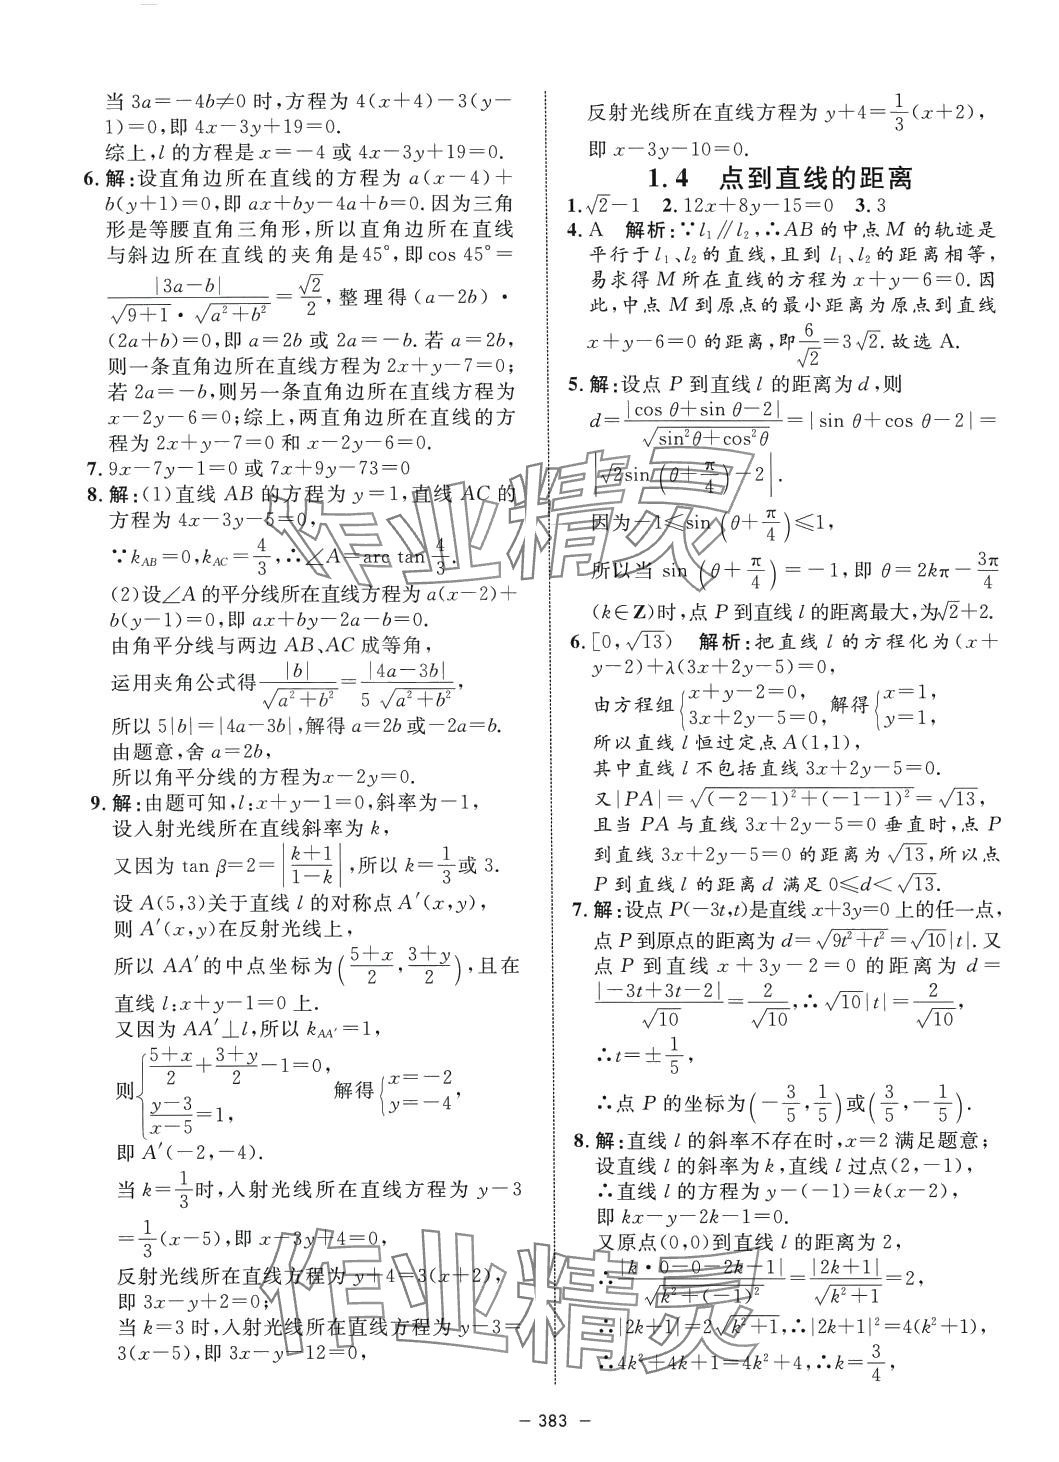 当 3a=-4b≠0 时,方程为 4(x+4)-3(y-
1)=0,即 4x-3y+19=0.
综上,l 的方程是 x=-4 或 4x-3y+19=0.
6.解:设直角边所在直线的方程为 a(x-4)+
b(y+1)=0,即 ax+by-4a+b=0.因为三角
形是等腰直角三角形,所以直角边所在直线
与斜边所在直线的夹角是 45°,即 cos 45°=
|3a-b|/(√(9+1)·√(a²+b²))=√2/2,整理得(a-2b)·
(2a+b)=0,即 a=2b 或 2a=-b.若 a=2b,
则一条直角边所在直线方程为 2x+y-7=0;
若 2a=-b,则另一条直角边所在直线方程为
x-2y-6=0;综上,两直角边所在直线的方
程为 2x+y-7=0 和 x-2y-6=0.
7.9x-7y-1=0 或 7x+9y-73=0
8.解:(1)直线 AB 的方程为 y=1,直线 AC 的
方程为 4x-3y-5=0,
∵k_AB=0,k_AC=4/3,∴∠A=arc tan 4/3.
(2)设∠A 的平分线所在直线方程为 a(x-2)+
b(y-1)=0,即 ax+by-2a-b=0.
由角平分线与两边 AB、AC 成等角,
运用夹角公式得|b|/√(a²+b²)=|4a-3b|/(5√(a²+b²)),
所以 5|b|=|4a-3b|,解得 a=2b 或-2a=b.
由题意,舍 a=2b,
所以角平分线的方程为x-2y=0.
9.解:由题可知,l:x+y-1=0,斜率为-1,
设入射光线所在直线斜率为 k,
又因为 tan β=2=|(k+1)/(1-k)|,所以 k=1/3或 3.
设 A(5,3)关于直线 l 的对称点 A′(x,y),
则 A′(x,y)在反射光线上,
所以 AA′的中点坐标为((5+x)/2,(3+y)/2),且在
直线 l:x+y-1=0 上.
又因为 AA′⊥l,所以 k_AA′=1,
则{(5+x)/2+(3+y)/2-1=0, (y-3)/(x-5)=1, 解得{x=-2 y=-4,
即 A′(-2,-4).
当 k=1/3时,入射光线所在直线方程为 y-3
=1/3(x-5),即 x-3y+4=0,
反射光线所在直线方程为 y+4=3(x+2),
即 3x-y+2=0;
当 k=3 时,入射光线所在直线方程为 y-3=
3(x-5),即 3x-y-12=0,
反射光线所在直线方程为 y+4=1/3(x+2),
即 x-3y-10=0.
1.4 点到直线的距离
1.√2-1 2.12x+8y-15=0 3.3
4.A 解析:∵l₁∥l₂,∴AB 的中点 M 的轨迹是
平行于 l₁、l₂ 的直线,且到 l₁、l₂ 的距离相等,
易求得 M 所在直线的方程为 x+y-6=0.因
此,中点 M 到原点的最小距离为原点到直线
x+y-6=0 的距离,即6/√2=3√2.故选 A.
5.解:设点 P 到直线 l 的距离为 d,则
d=|cos θ+sin θ-2|/√(sin²θ+cos²θ)=|sin θ+cos θ-2|=
|√2sin(θ+π/4)-2|.
因为-1≤sin(θ+π/4)≤1,
所以当 sin(θ+π/4)=-1,即 θ=2kπ-3π/4
(k∈Z)时,点 P 到直线 l 的距离最大,为√2+2.
6.[0,√13) 解析:把直线 l 的方程化为(x+
y-2)+λ(3x+2y-5)=0,
由方程组{x+y-2=0, 3x+2y-5=0, 解得{x=1, y=1,
所以直线 l 恒过定点 A(1,1),
其中直线 l 不包括直线 3x+2y-5=0.
又|PA|=√((-2-1)²+(-1-1)²)=√13,
且当 PA 与直线 3x+2y-5=0 垂直时,点 P
到直线 3x+2y-5=0 的距离为√13,所以点
P 到直线 l 的距离 d 满足 0≤d<√13.
7.解:设点 P(-3t,t)是直线 x+3y=0 上的任一点,
点 P 到原点的距离为 d=√(9t²+t²)=√10|t|.又
点 P 到直线 x+3y-2=0 的距离为 d=
|-3t+3t-2|/√10=2/√10,∴√10|t|=2/√10,
∴t=±1/5,
∴点 P 的坐标为(-3/5,1/5)或(3/5,-1/5).
8.解:直线 l 的斜率不存在时,x=2 满足题意;
设直线 l 的斜率为 k,直线 l 过点(2,-1),
∴直线 l 的方程为 y-(-1)=k(x-2),
即 kx-y-2k-1=0.
又原点(0,0)到直线 l 的距离为 2,
∴|k·0-0-2k-1|/√(k²+(-1)²)=|2k+1|/√(k²+1)=2,
∴|2k+1|=2√(k²+1),∴|2k+1|²=4(k²+1),
∴4k²+4k+1=4k²+4,∴k=3/4,
- 383 -
作业精灵
作业精灵